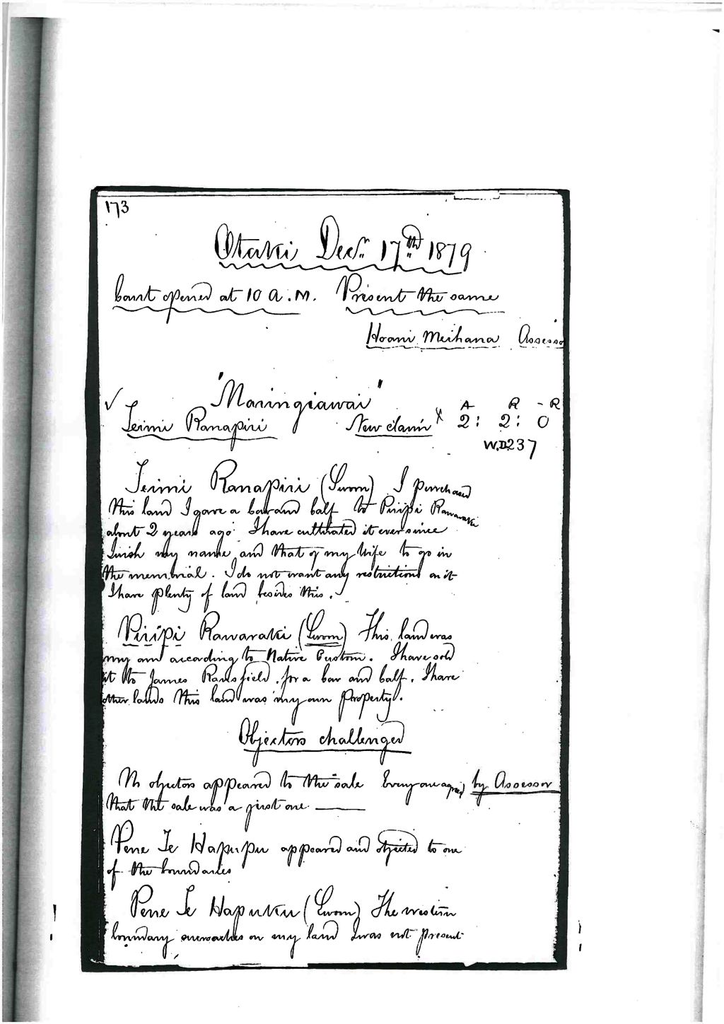 173
Otaki Decr. 17th 1879
Court opened at 10 A.M. Present the same
Hoani Meihana Assessor
"Maringiawai"
A R - R
✓ Teimi Ranapiri New claim x 2: 2: 0
W.D237
Teimi Ranapiri (Sworn) I purchased
this land I gave a bar and half to Piripi Rawaraki
about 2 years ago I have cultivated it ever since
I wish my name and that of my wife to go in
the memorial. I do not want any restrictions on it
I have plenty of land besides this.
Piripi Rawaraki (Sworn) This land was
my own according to Native Custom. I have sold
it to James Ransfield for a bar and half. I have
other lands this land was my own Property.
Objectors challenged
No objectors appeared to the sale Everyone agreed by Assessor
that the sale was a just one
Pene Te Hapupu appeared and objected to one
of the boundaries
Pene Te Hapuku (Sworn) The western
boundary encroaches on my land I was not present